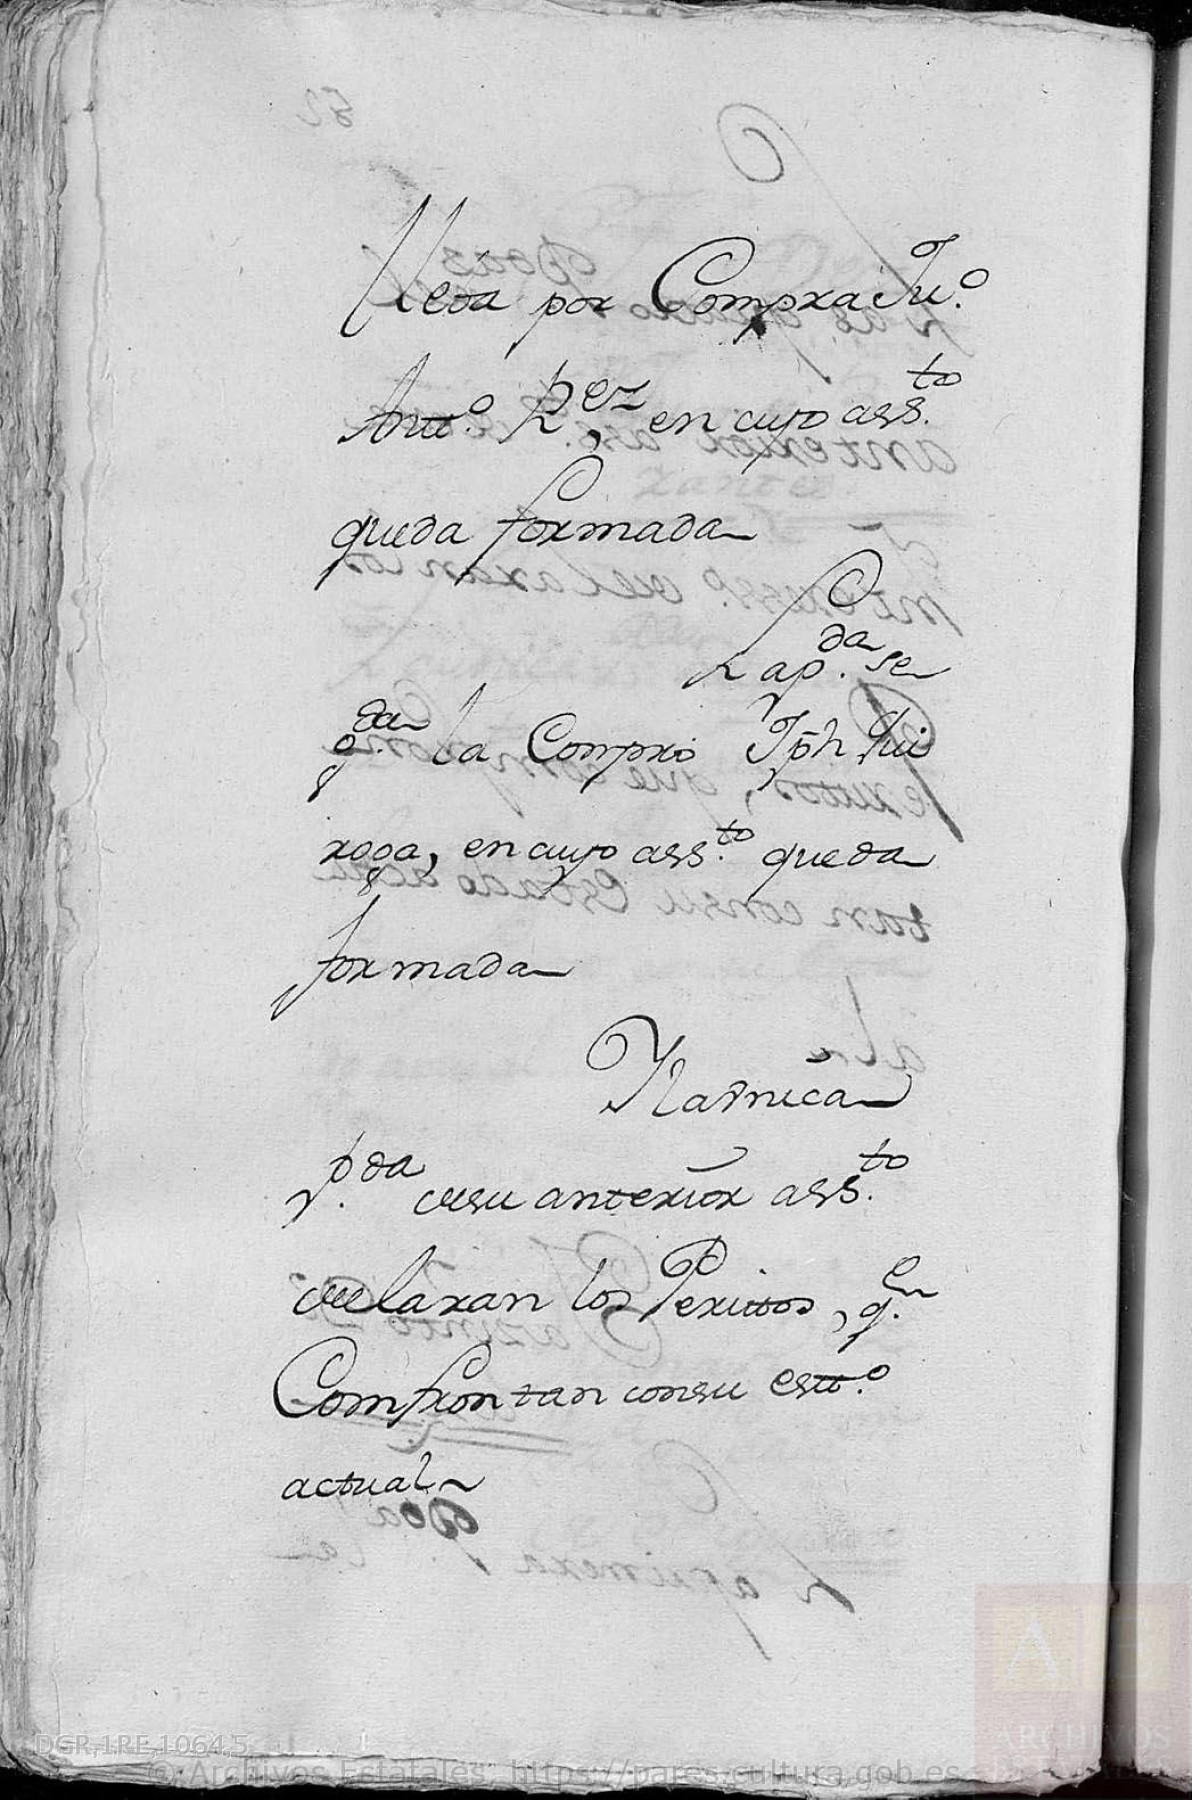 lleva por Compra Ju.º
Antt.º Pz, en cuyo ass.to
queda formada
La p.da se
g.da la Compro Jph Qui
roga, en cuyo ass.to queda
formada
Y la vnica
p.da de su anterior ass.to
declaran los Peritos, q.e
Comfrontan con su estt.º
actual
DGR,1RE,1064,5
© Archivos Estatales, https://pares.cultura.gob.es
AE
ARCHIVOS
ESTATALES